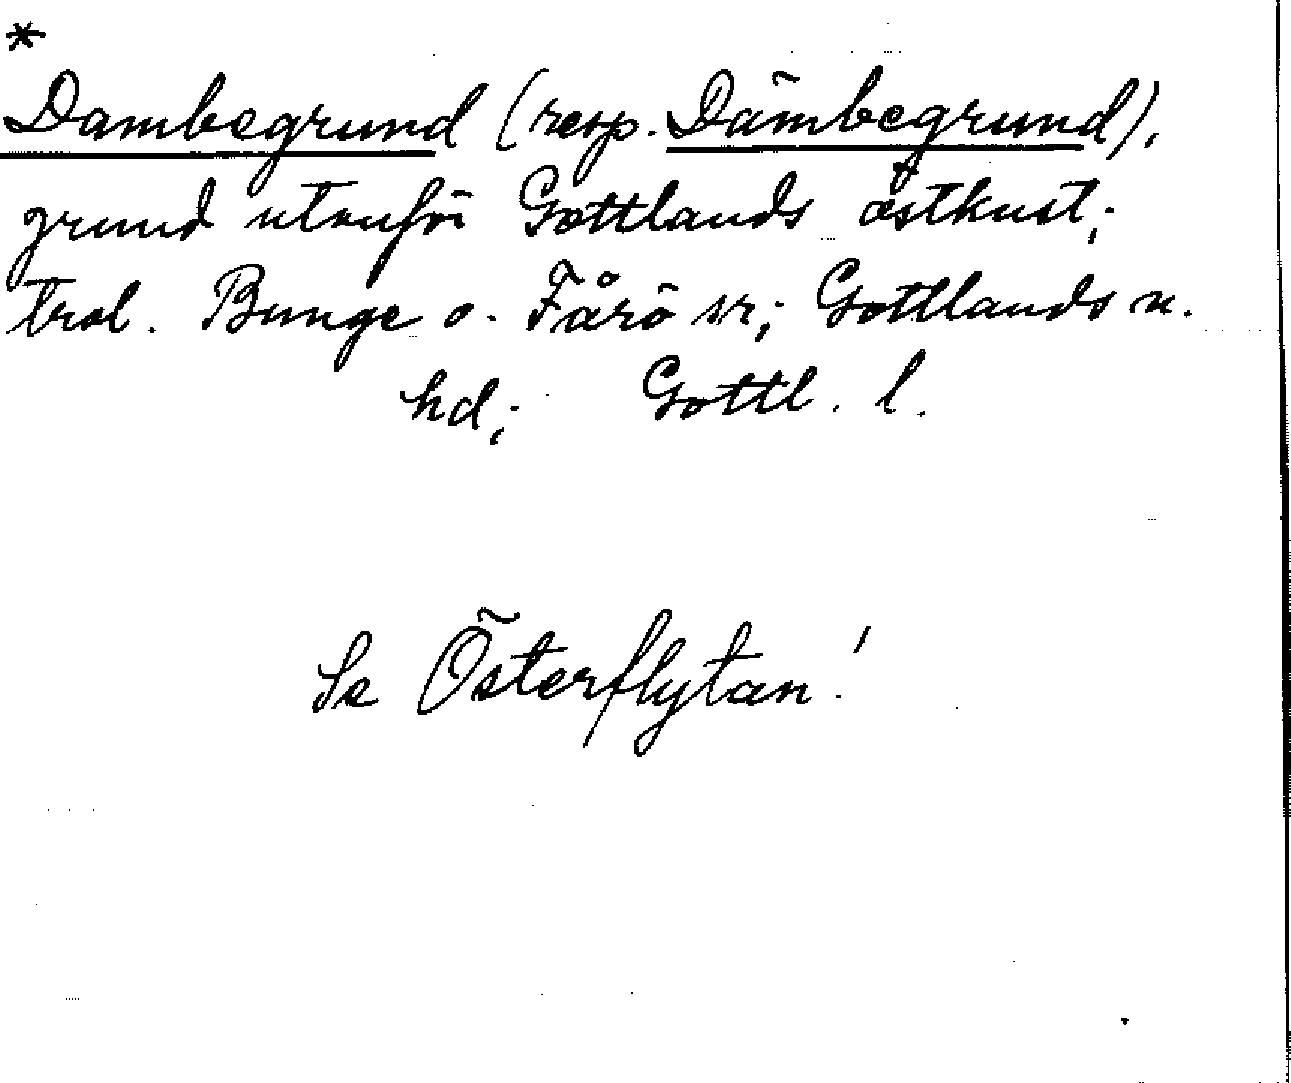 *
Dambegrund (resp. Dämbegrund),
grund utanför Gottlands östkust;
trol. Bunge o. Fårö snr; Gottlands n.
hd; Gottl. l.
Se Österflytan!